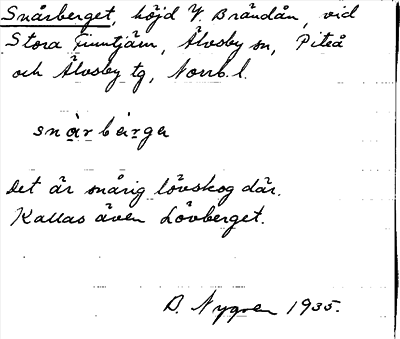 Snårberget, höjd V. Brändån, vid
Stora Finntjärn, Älvsby sn, Piteå
och Älvsby tg, Norrb. l.
snàrbärgə
Det är snårig lövskog där.
Kallas även Lövberget.
D. Nygren 1935.